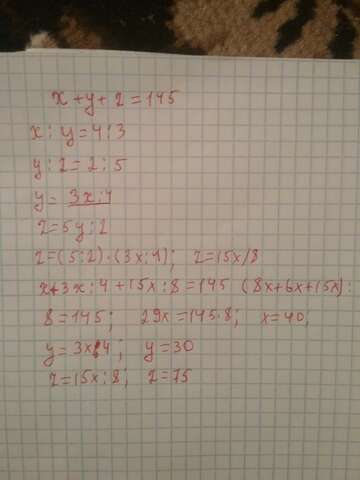 x+y+z=145
x:y=4:3
y:z=2:5
y=3x:4
z=5y:2
z=(5:2)·(3x:4); z=15x/8
x+3x:4+15x:8=145 (8x+6x+15x):
8=145; 29x=145·8; x=40;
y=3x:4; y=30
z=15x:8; z=75